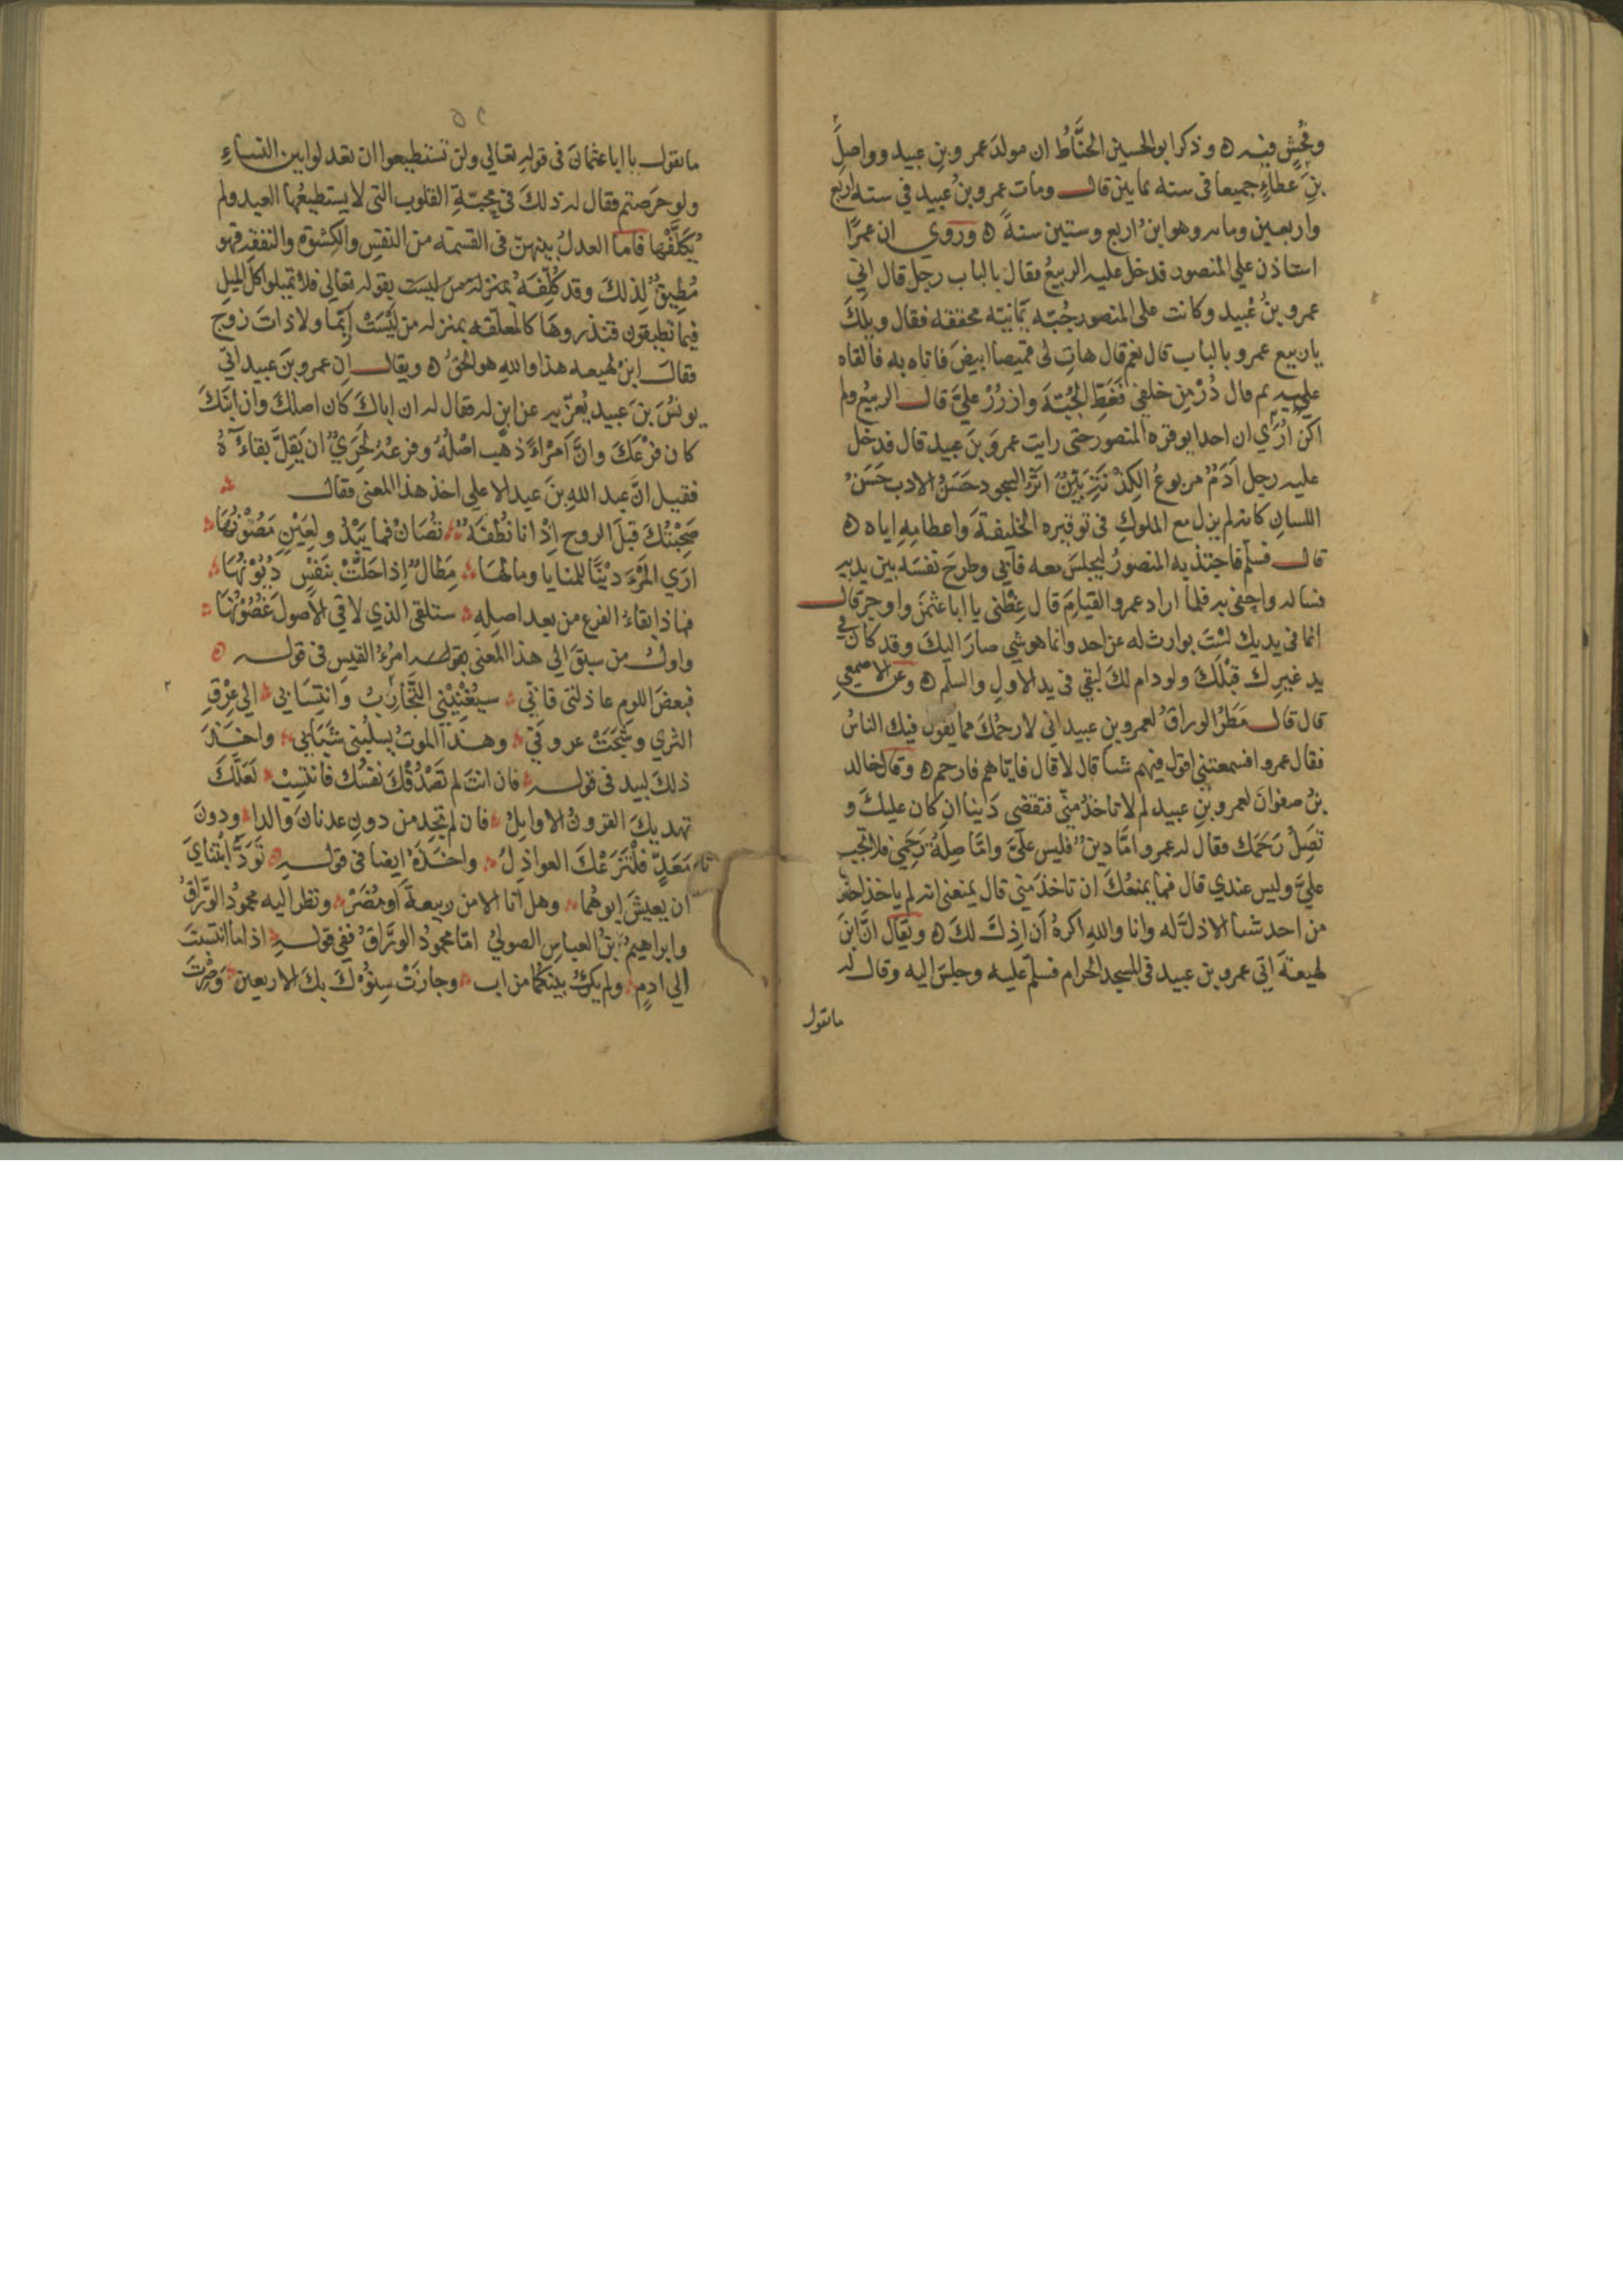 وفُحْشٍ فيه ه وذكر ابو الحسين الخيَّاطُ ان مولدَ عمرو بنِ عبيد وواصلَ
بنَ عَطاءٍ جميعا فى سنه ثمانين قال ومات عمرو بنُ عُبيد في سنه اربع
واربعين ومايه وهو ابنُ اربع وستين سنةً ه ورُوي ان عمرًا
استاذن علي المنصور فدخل عليه الربيعُ فقال بالباب رجل قال اني
عمرو بنُ عُبيد وكانت علي المنصور جُبّه يمانيّه محققه فقال ويلكَ
يا ربيع عمرو بالباب قال نعم قال هاتِ لى قميصا ابيضَ فاتاه به فالقاه
عليه ثم قال دُرْ مِن خلفي فَغَطِّ الجُبّةَ وازرُرْ عليَّ قال الربيعُ ولم
اكنْ اُرَي ان احدا يوقره المنصور حتى رايت عمرَو بنَ عبيد قال فدخل
عليه رجل اَدَمُ مربوعُ الكِدْنَةِ بَيْنُ اثَرِ السجود حَسَنُ الادب حَسَنُ
اللسانِ كانه لم يزل مع الملوكِ فى توقيره الخليفةَ واعظامِهِ اياه ه
قال فسلّم فاجتذبه المنصورُ ليجلسَ معه فابي وطرحَ نفسَه بين يديه
فساله واحفى به فلما اراد عمرو القيامَ قال عِظْنى يا ابا عثمنَ واوجز قال
انما فى يديك لسْتَ بوارث له عن احد وانما هو شي صارَ اليكَ وقد كان في
يد غيرِك قبْلَكَ ولو دام لكَ لبقي فى يد الاولِ والسلم ه وعن الاصمعي
قال قال مَطَرُ الوراقُ لعمرو بنِ عبيد اني لارحمُكَ مما يقول فيك الناسُ
فقال عمرو افسمعتنى اقول فيهم شيا قال لا قال فاياهم فارحم ه وقال خالد
بنُ صفوانَ لعمرو بنِ عبيد لم لا تاخذُ منّي فتقضي دَينا ان كان عليكَ و
تَصِلُ رَحَمَك فقال له عمرو امَّا دينٌ فليس عليَّ وامَّا صِلَةُ رَحمي فلا تجب
عليَّ وليس عندي قال فما يمنعُكَ ان تاخذَ منّي قال يمنعنى انه لم ياخذ احد
من احد شيا الا ذلَّ له وانا والله اكرهُ اَن اذِلَّ لكَ ه ويقال انَّ ابنَ
لهيعةَ اتى عمرو بن عبيد فى المسجد الحرام فسلّم عليه وجلسَ اليه وقال له
ما تقول
٥٢
ما تقول يا ابا عثمانَ فى قوله تعالي ولن تستطيعوا ان تعدلوا بين النساءِ
ولو حَرَصتم فقال له ذلكَ فى محبّةِ القلوب التى لا يستطيعُها العبد ولم
يُكَلَّفْها فاما العدلُ بينهنّ فى القسمه من النفْسِ والكِسْوَةِ والنفقه فهو
مُطِيقٌ لِذلكَ وقد كُلِّفَهُ بقوله تعالي فلا تميلوا كل الميلِ
فيما تطيقون فتذروها كالمعلّقه بمنزله من لَيْسَتْ اَيِّمًا ولا ذاتَ زوج
فقالَ ابنُ لهيعه هذا والله هو الحقُ ه ويقال ان عمرو بنَ عبيد اتي
يونُسَ بنَ عبيد يُعزّيه عن ابنٍ له فقال له ان اباكَ كان اصلكَ وان ابنَكَ
كان فرْعَكَ وانَّ اَمْرَاءً ذهَب اصْلُهُ وفرعُهُ لَحَرِيٌّ ان يَقِلَّ بقاءُهُ
فقيل انَّ عبد اللهِ بنَ عبد الاعلي اخذ هذا المعنى فقال
صَحِبْتُكَ قبلَ الروح اِذْ انا نُطْفَةٌ تُصَانُ فما يَبْدُو لِعَيْنٍ مَصُوْنُهَا
ارَي المَرْءَ دَيْنًا للمنايا ومالها مِطَالٌ اِذا حَلَّتْ بنَفْسٍ دُيُوْنُهَا
فماذا بقاءُ الفرع من بعد اصلِهِ ستلقى الذي لاقي الاُصولَ غُصُوْنُهَا
واولُ من سبقَ الي هذا المعنى بقوله امرُءُ القيس فى قوله ه
فبعضَ اللومِ عاذلتى فانّي سيُغْنِيْنِى التَّجَاربُ وَانتِسَابي الي عِرْقِ
الثري وشَجَتْ عروقي وهذا الموتُ يسلبُنى شَبَابي واخذَ
ذلكَ لبيد فى قوله فان انتَ لم تَصْدُقْكَ نفسُك فانتسِبْ لَعَلَّكَ
تهديكَ القرونُ الاوايلُ فان لم تجد من دونِ عدنانَ والدا ودونَ
مَعَدٍّ فلْتَزَعْكَ العواذلُ واخذَهُ ايضا فى قوله ه تَوَدُّ ابْنتايَ
ان يعيشَ ابوهُما وهل انا الا من ربيعةَ اَو مُضَرْ ونظر اليه محمودُ الورَّاقُ
وابراهيمُ بنُ العباسِ الصوليُ امّا محمودُ الورَّاقُ ففي قوله اذا ما انتسبتَ
الي ادمٍ ولم يكُ بينَكُما من اب وجازتْ سِنُوْكَ بكَ الاربعين وَصِرْتَ